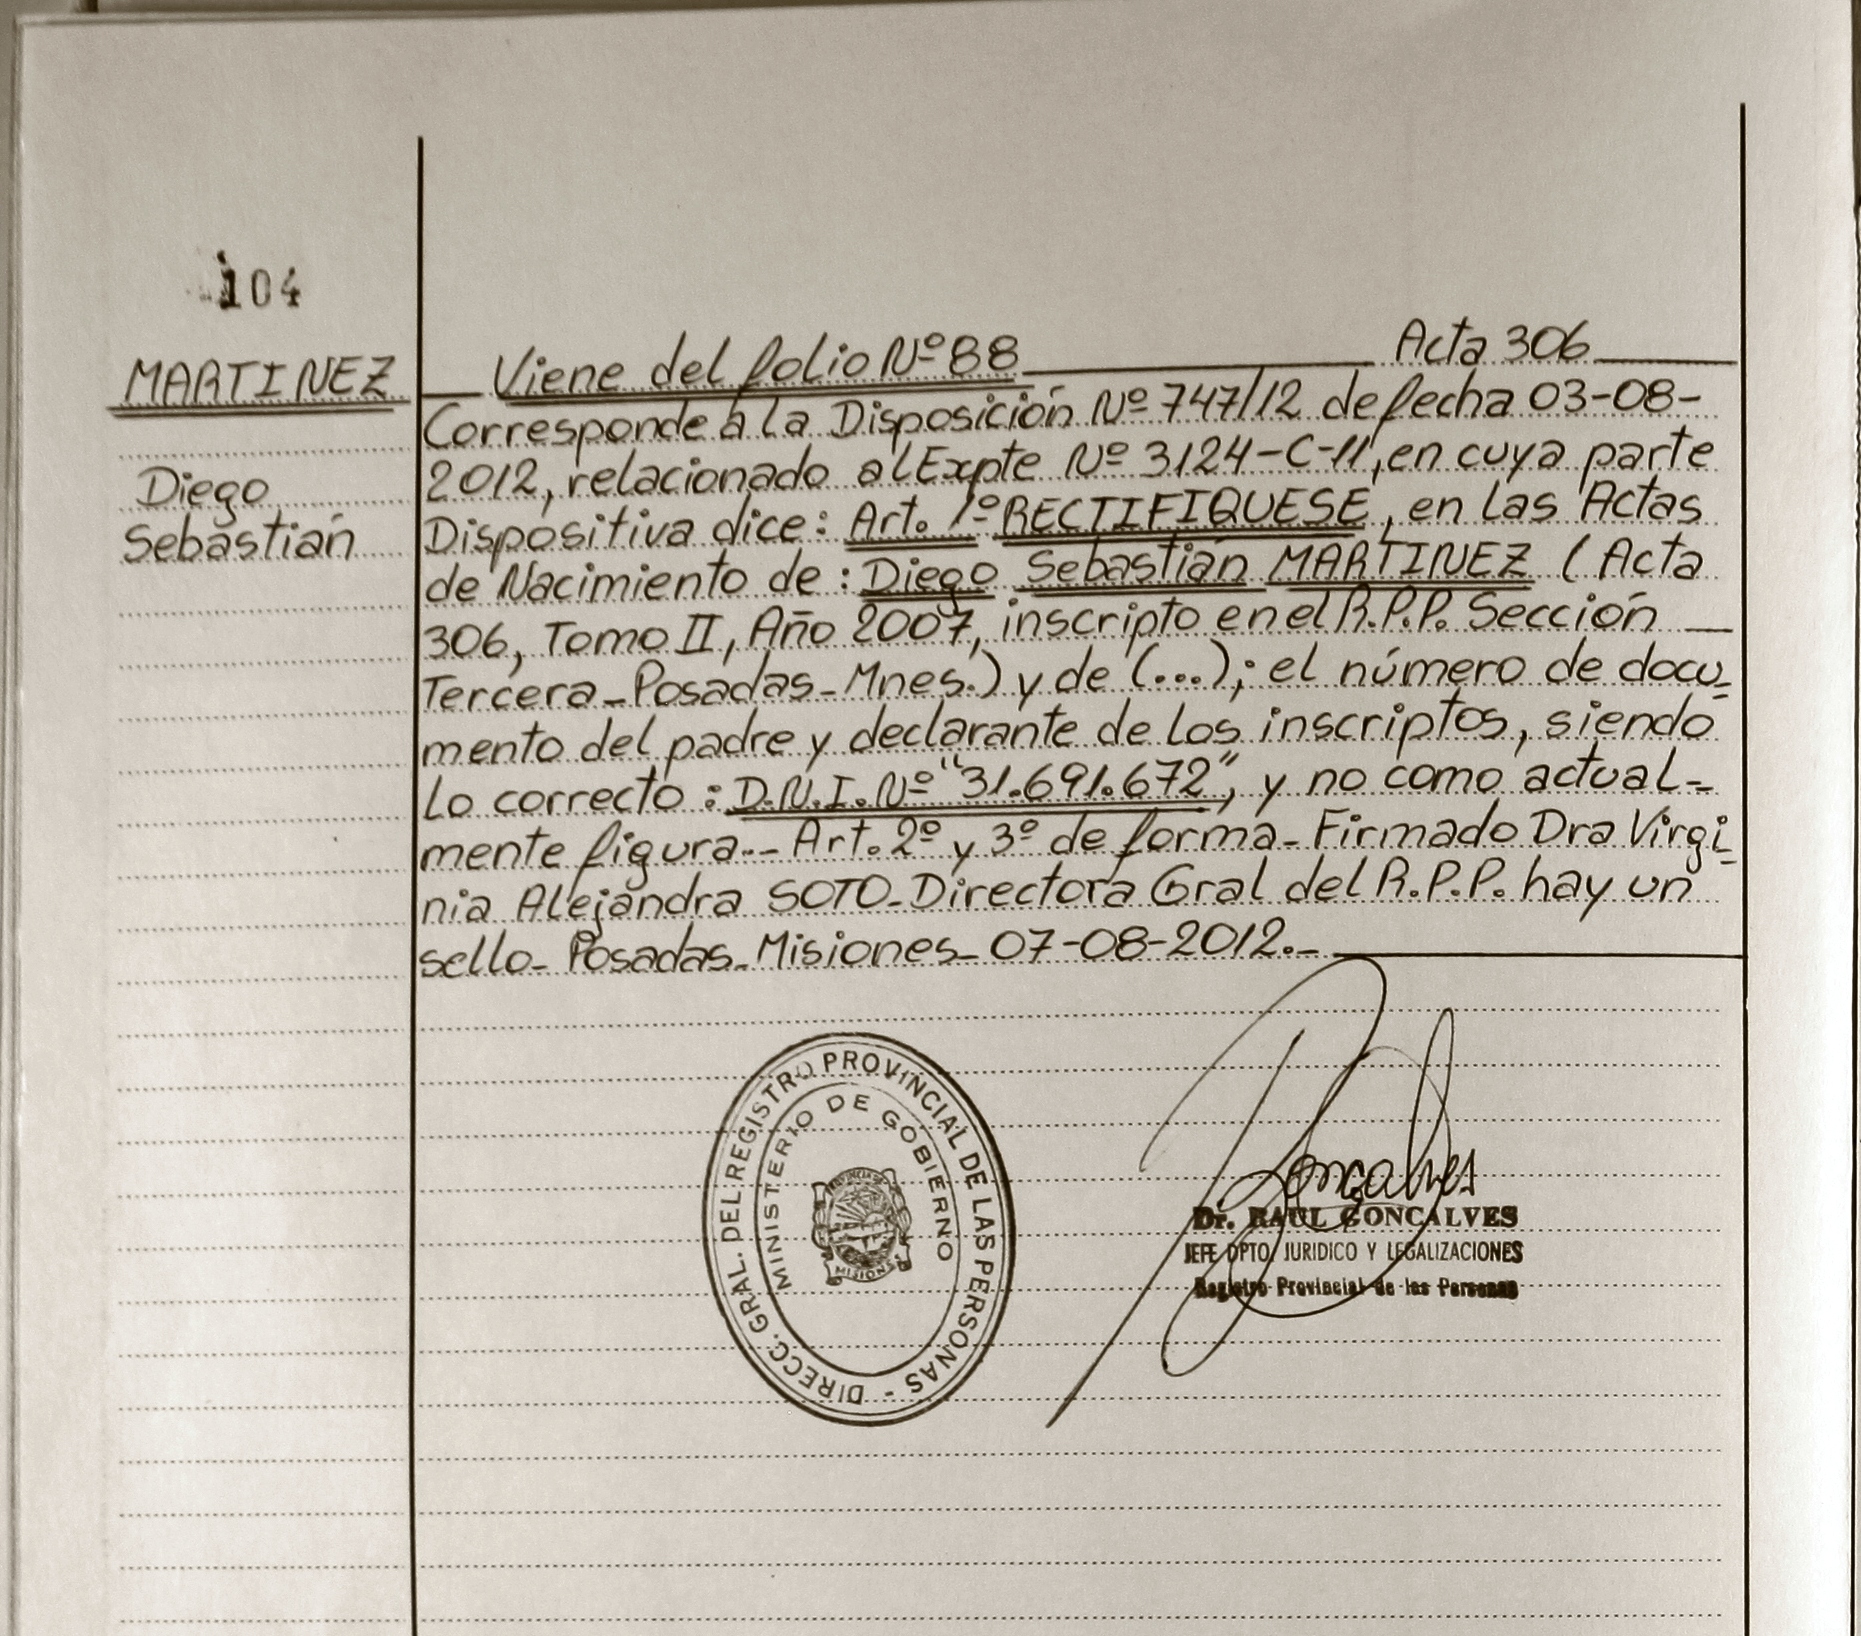 104
MARTINEZ
Diego
Sebastián
Viene del folio Nº 88 Acta 306
Corresponde a la Disposición Nº 747/12 de fecha 03-08-
2012, relacionado al Expte Nº 3124-C-11, en cuya parte
Dispositiva dice: Art. 1º RECTIFIQUESE, en las Actas
de Nacimiento de: Diego Sebastián MARTINEZ (Acta
306, Tomo II, Año 2007, inscripto en el R.P.P. Sección
Tercera-Posadas-Mnes.) y de (...); el número de docu-
mento del padre y declarante de los inscriptos, siendo
lo correcto: D.N.I. Nº "31.691.672", y no como actual-
mente figura.-- Art. 2º y 3º de forma- Firmado Dra Virgi-
nia Alejandra SOTO-Directora Gral del R.P.P. hay un
sello- Posadas-Misiones- 07-08-2012.-
DIRECC. GRAL. DEL REGISTRO PROVINCIAL DE LAS PERSONAS -
MINISTERIO DE GOBIERNO
PROVINCIA DE
MISIONES
Gonçalves
Dr. RAUL GONCALVES
JEFE DPTO. JURIDICO Y LEGALIZACIONES
Registro Provincial de las Personas